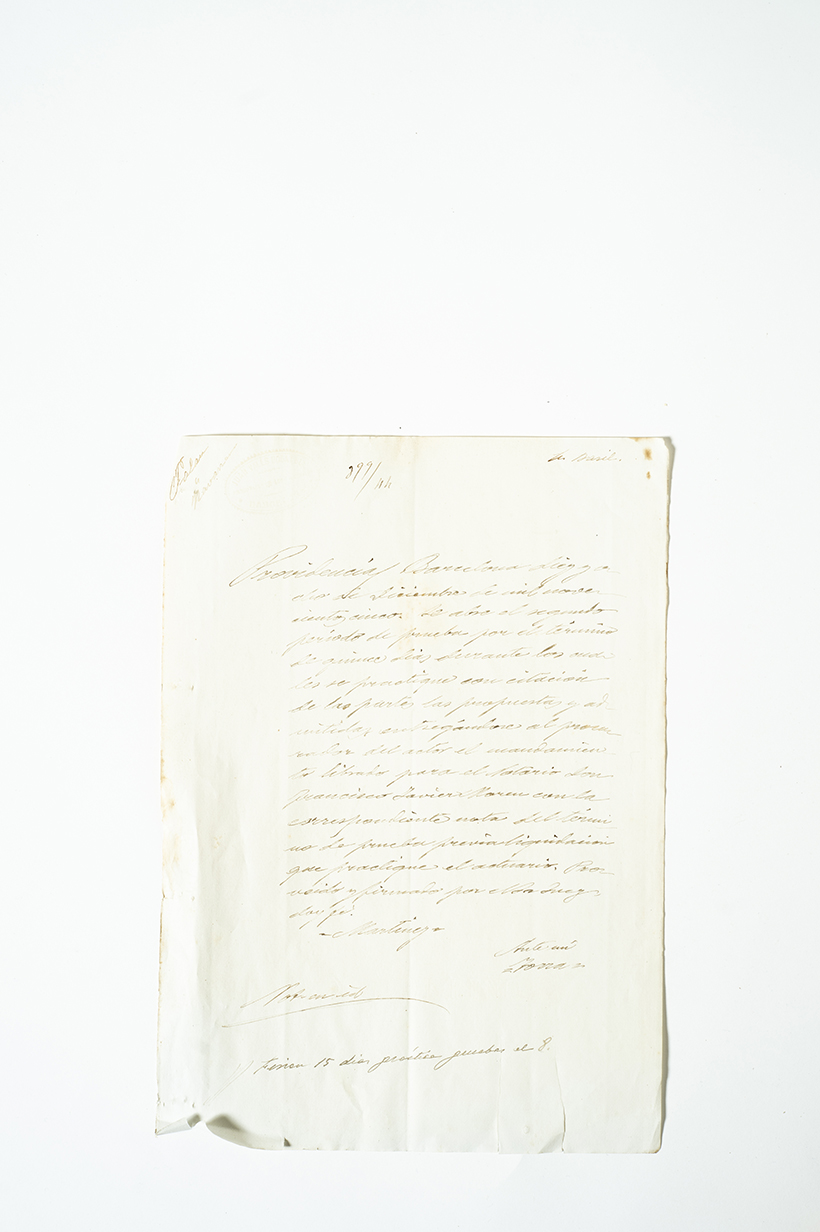 399/44
Providencia Barcelona diez y o
cho de Diciembre de mil nove
cientos cinco. Se abre el segundo
período de prueba por el término
de quince dias durante los cua
les se practique con citación
de las partes las propuestas y ad
mitidas, entregándose al procu
rador del actor el mandamien
to librado para el Notario Don
Francisco Javier Moreu con la
correspondiente nota del térmi
no de prueba previa liquidacion
que practique el actuario. Pro
veido y firmado por
doy fé.
Martinez
Ante mi
15 dias práctica pruebas el 8.